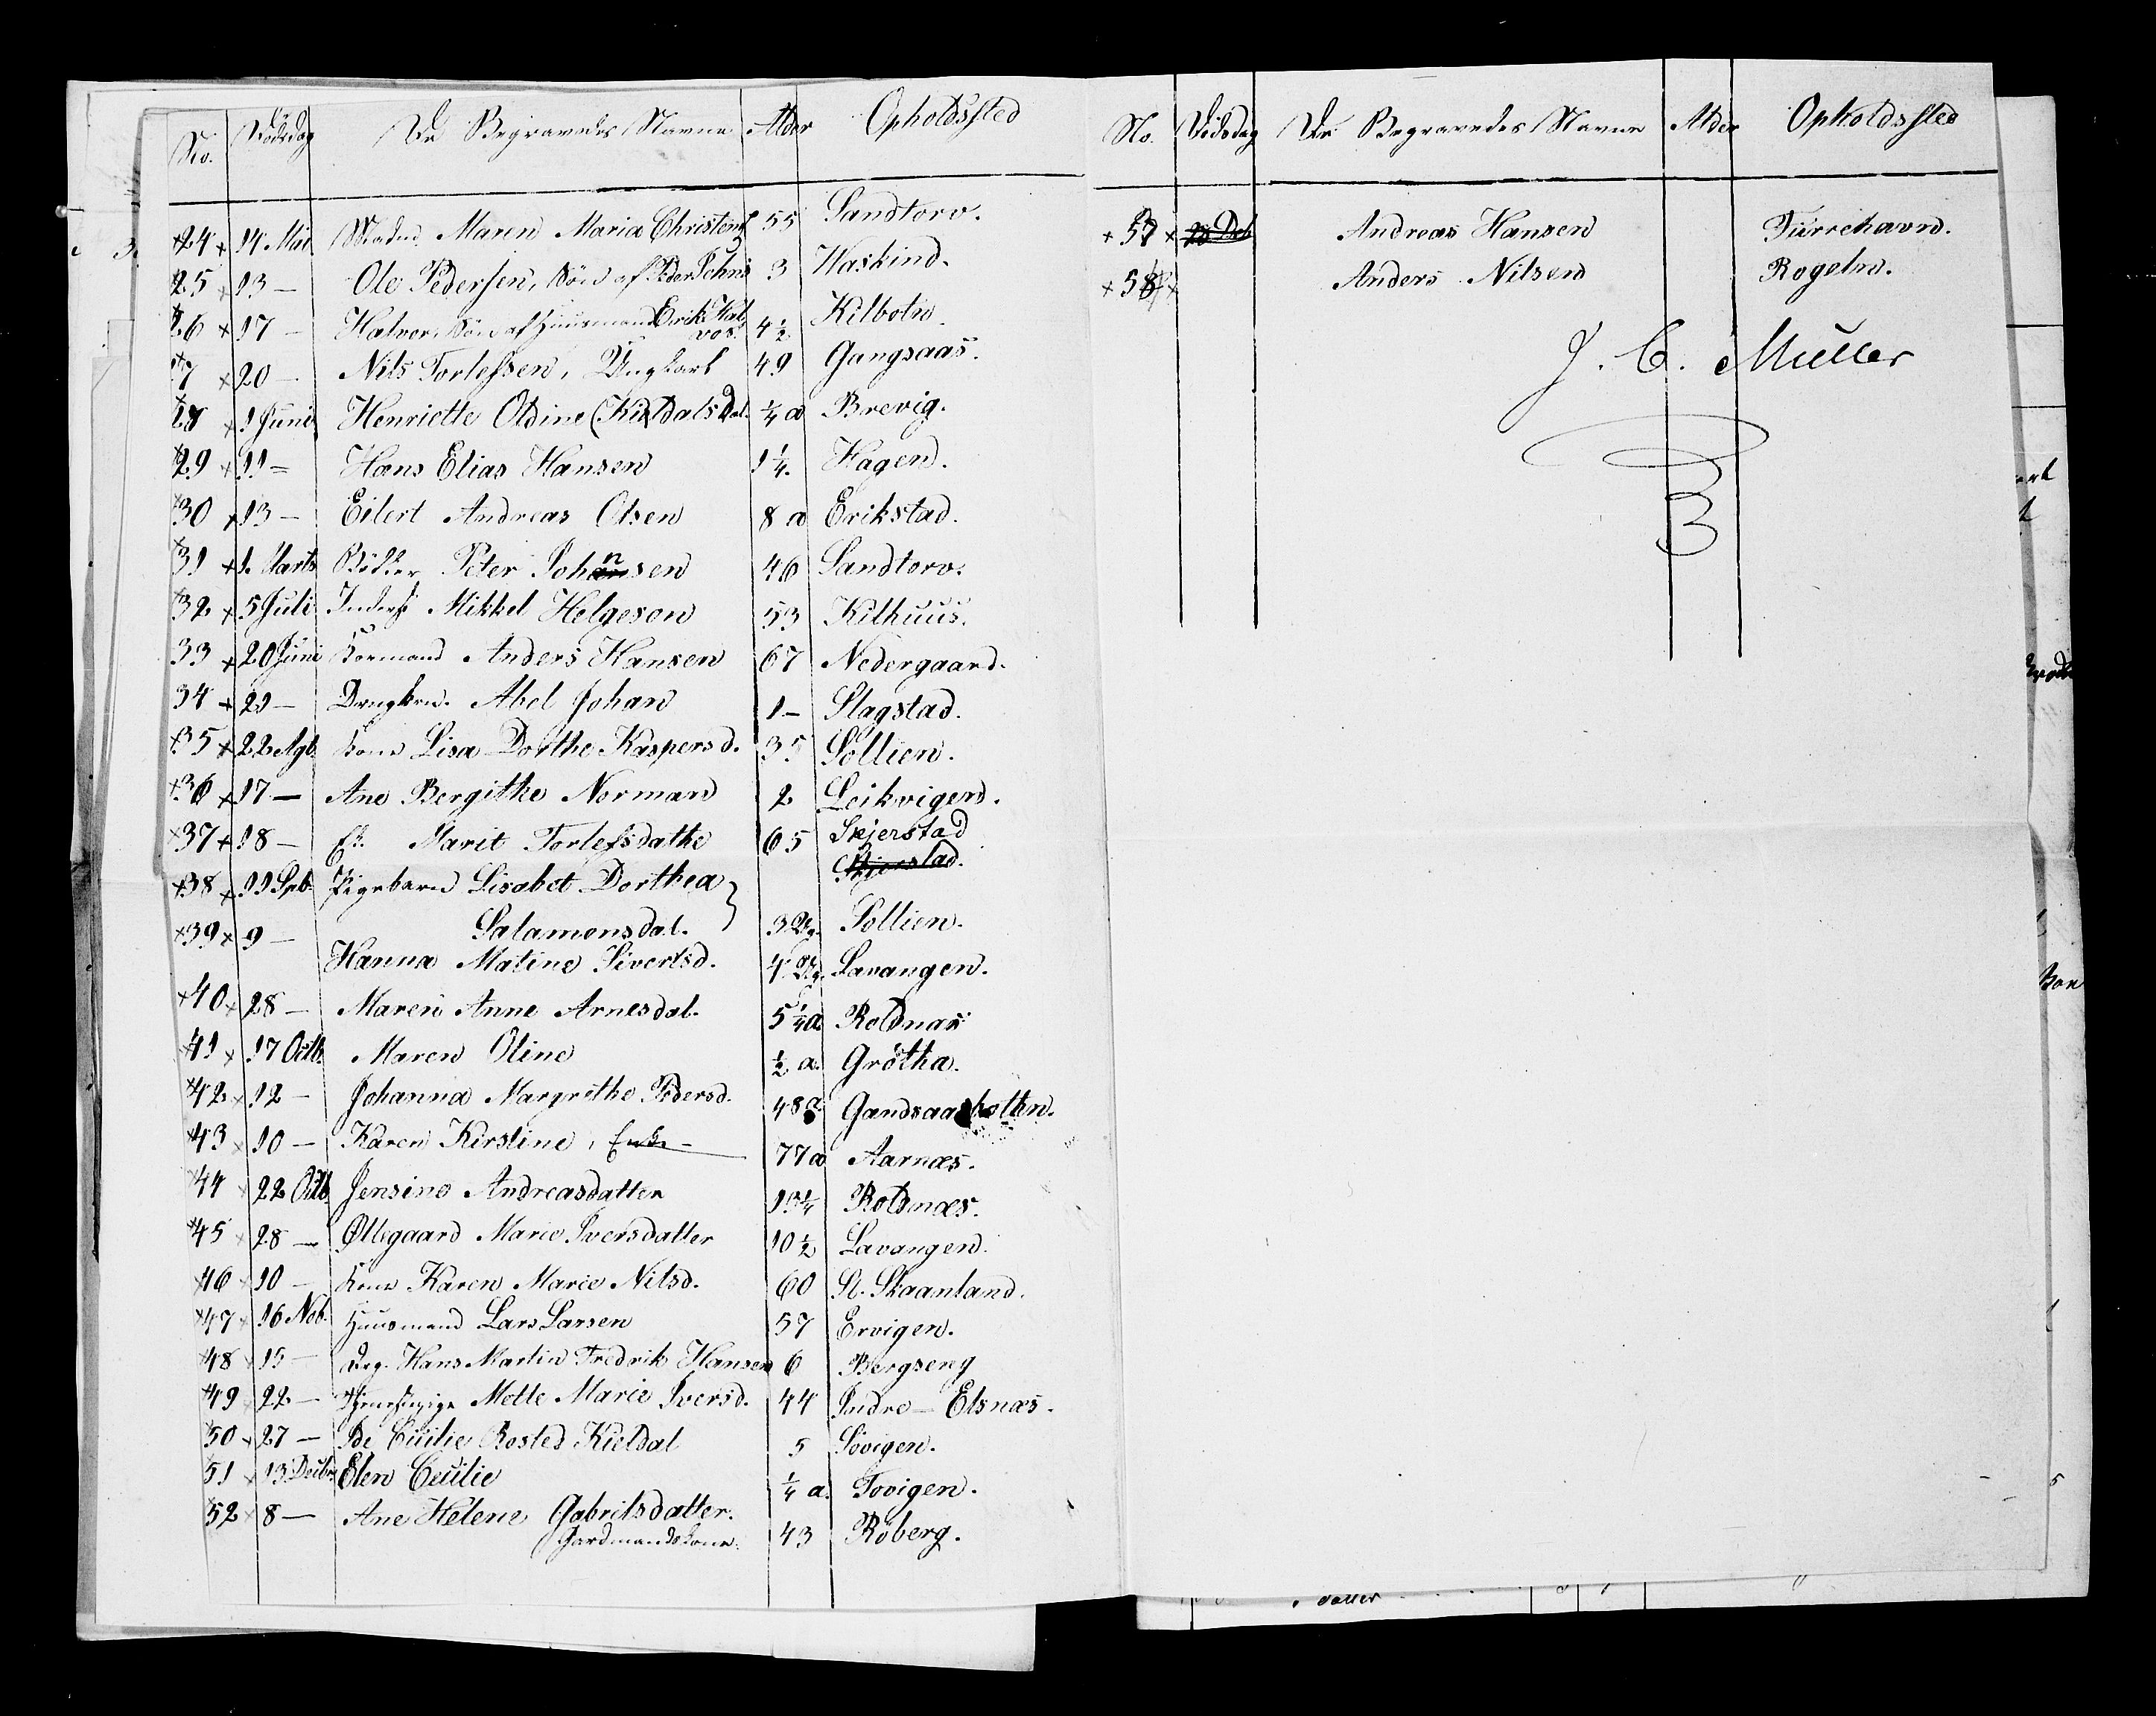 No. Dödsdag De Begravedes Navne Alder Opholdssted
24 14 Mai Madm Maren Maria Christens 55 Sandtorv.
25 13 — Ole Pedersen, Sön af Peder Johns 3 Waskind.
26 17 — Halvor, Sön af Huusmand Erik Hal 4½ Kilbotn.
vos.
7 20 — Nils Torlefsen, Ungkarl 49 Gangsaas.
28 1 Juni Henriette Oldine (Kildalsdat. ¼ a Brevig.
29 11 — Hans Elias Hansen 1¼. Hagen.
30 13 — Eilert Andreas Olsen 8 a Erikstad.
31 1. Marts Peter Johansen 46 Sandtorv.
32 5 Juli Inderst Mikkel Helgeson 53 Kilhuus.
33 20 Juni Kormand Anders Hansen 67 Nedergaard.
34 21 — Drengebrn. Abel Johan 1 — Slagstad.
35 22 Agb. Kone Lisa Dorthe Kaspersd. 35 Sollien.
36 17 — Ane Bergithe Norman 2 Leikvigen.
37 18 — Ek. Marit Torlefsdatke 65 Skjerstad
Skjerstad.
38 11 Spb. Pigebarn Lisabet Dorthea }
39 9 — Salamonsdat. 3 Ug. Sollien.
Hanna Matine Sivertsd. 4 Ug. Lavangen.
40 28 — Maren Anne Arnesdat. 5 ¼a Roldnas
41 17 Octb. Maren Oline ½ a. Grötha.
42 12 — Johanna Margrethe Pedersd. 48 a Gandsaasbothn.
43 10 — Karen Kirstine, Enke — 77 a Aarnæs.
44 22 Octb. Jensine Andreasdatter 13¼ Roldnæs.
45 28 — Øllegaard Marie Iversdatter 10½ Lavangen.
46 10 — Kone Karen Marie Nilsd. 60 St. Skaanland.
47 16 Nob. Huusmand Lars Larsen 57 Ervigen.
48 15 — Drg. Hans Martin Fredrik Hansen 6 Bergseng
49 22 — Tjenestepige Mette Marie Iversd. 44 Indre — Elsnæs.
50 27 — Be Cecilie Rosted Kieldal 5 Sövigen.
51 13 Decbr. Elen Cecilie ¼ a. Tovigen.
52 8 — Ane Helene Gabrilsdatter.
Gardmandskone. 43 Röberg.
No. Dödsdag De Begravedes Navne Alder Opholdssted
57 28 Deb Andreas Hansen Türrehavn.
58 Anders Nilsen Rogeln.
J. C. Müller